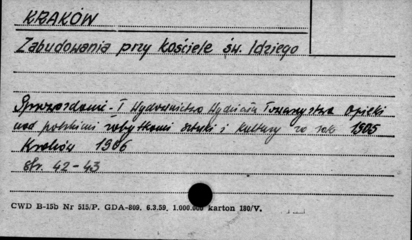 KRAKÓW
Zabudowania przy kościele św. Idziego
Sprawozdanie - I Wydawnictwo Wydziału Towarzystwa Opieki
nad polskimi zabytkami sztuki i kultury za rok 1905
Kraków 1906
str. 42-43
CWD B-15b Nr 515/P. GDA-809. 6.3.59. 1.000.000 karton 180/V.